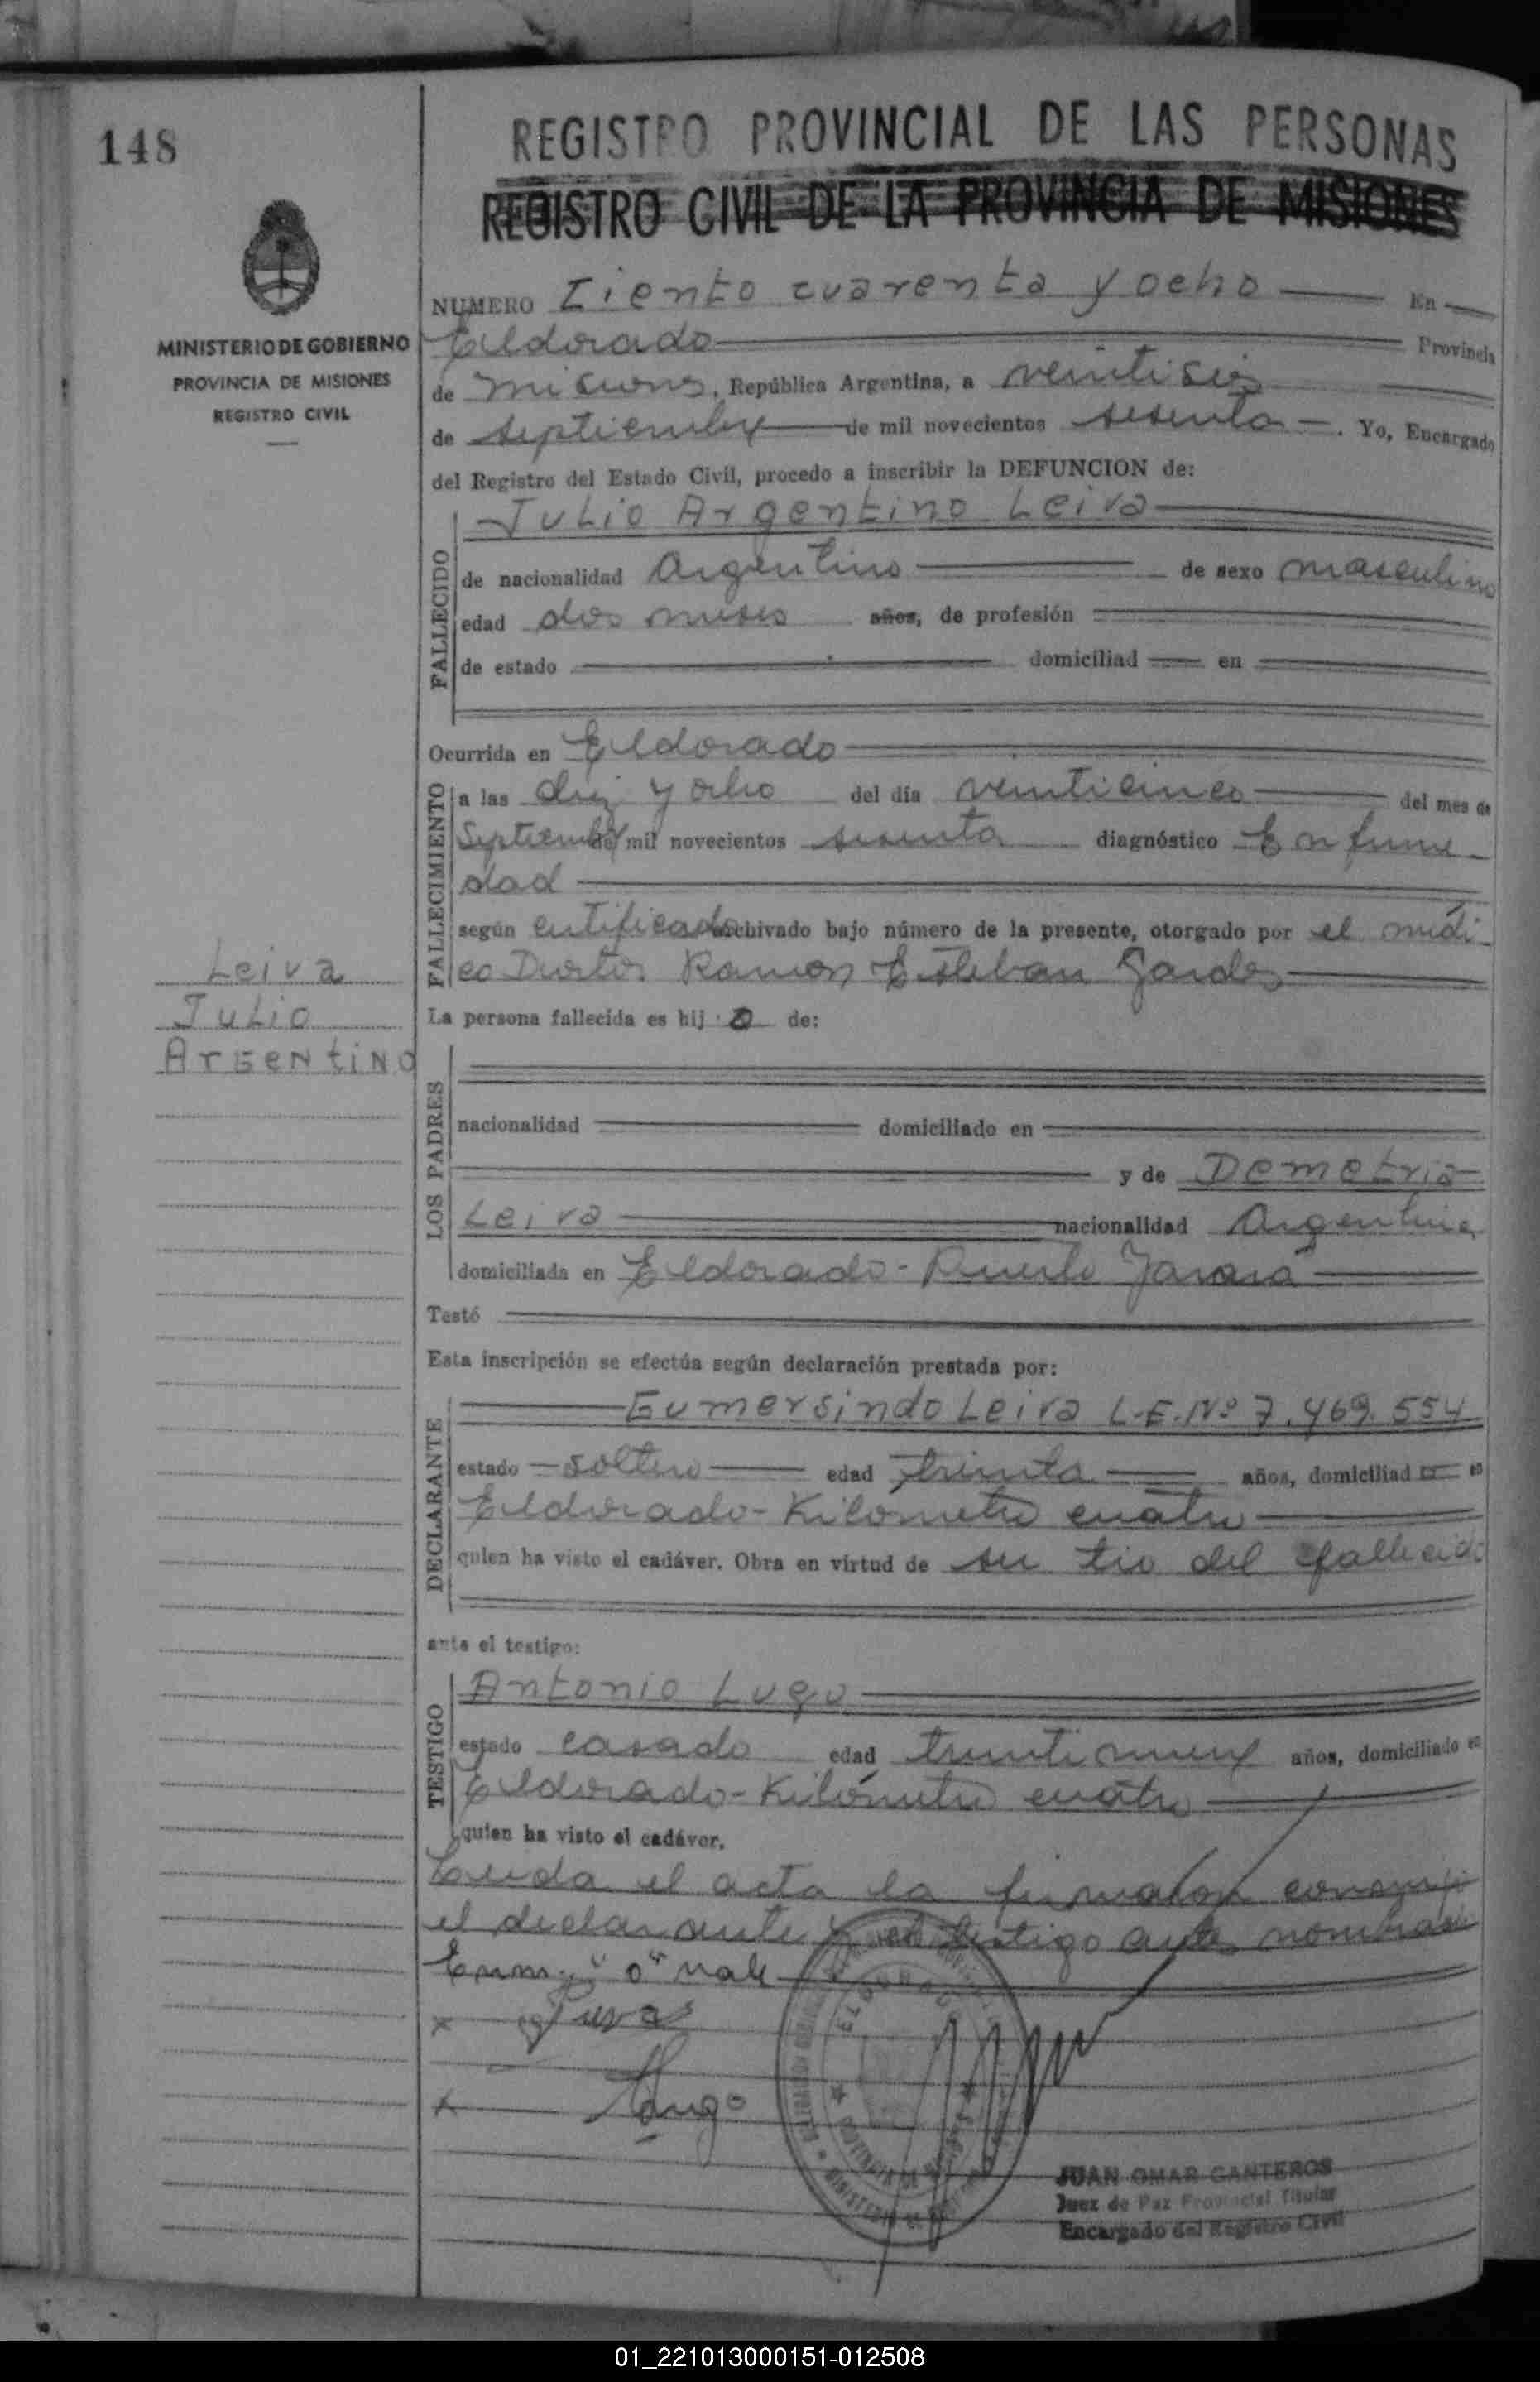 148
REGISTRO PROVINCIAL DE LAS PERSONAS
REGISTRO CIVIL DE LA PROVINCIA DE MISIONES
MINISTERIO DE GOBIERNO
PROVINCIA DE MISIONES
REGISTRO CIVIL
NUMERO Ciento cuarenta y ocho En
Eldorado Provincia
de Misiones, República Argentina, a veintiseis
de septiembre de mil novecientos sesenta . Yo, Encargado
del Registro del Estado Civil, procedo a inscribir la DEFUNCION de:
FALLECIDO
Julio Argentino Leiva
de nacionalidad Argentino de sexo masculino
edad dos meses años, de profesión
de estado domiciliad en
Ocurrida en Eldorado
FALLECIMIENTO
a las diez y ocho del día veinticinco del mes de
Septiembre de mil novecientos sesenta diagnóstico Enferme-
dad
según certificado archivado bajo número de la presente, otorgado por el médi-
co Doctor Ramon Esteban
La persona fallecida es hijo de:
Leiva
Julio
Argentino
LOS PADRES
nacionalidad domiciliado en
y de Demetria
Leiva nacionalidad Argentina
domiciliada en Eldorado-Puerto
Testó
Esta inscripción se efectúa según declaración prestada por:
DECLARANTE
Gumersindo Leiva L.E.Nº 7.469.554
estado soltero edad treinta años, domiciliado en
Eldorado-Kilometro cuatro
quien ha visto el cadáver. Obra en virtud de su tio del fallecido
ante el testigo:
TESTIGO
Antonio Lugo
estado casado edad treintinueve años, domiciliado en
Eldorado-Kilómetro cuatro
quien ha visto el cadáver.
Leida el acta la firmaron conmigo
el declarante y el testigo antes nombrado
Enm: "o" vale
x Leiva
x Lugo
ELDORADO
PROVINCIA DE MISIONES
JUAN OMAR CANTEROS
Juez de Paz Provincial Titular
Encargado del Registro Civil
01_221013000151-012508